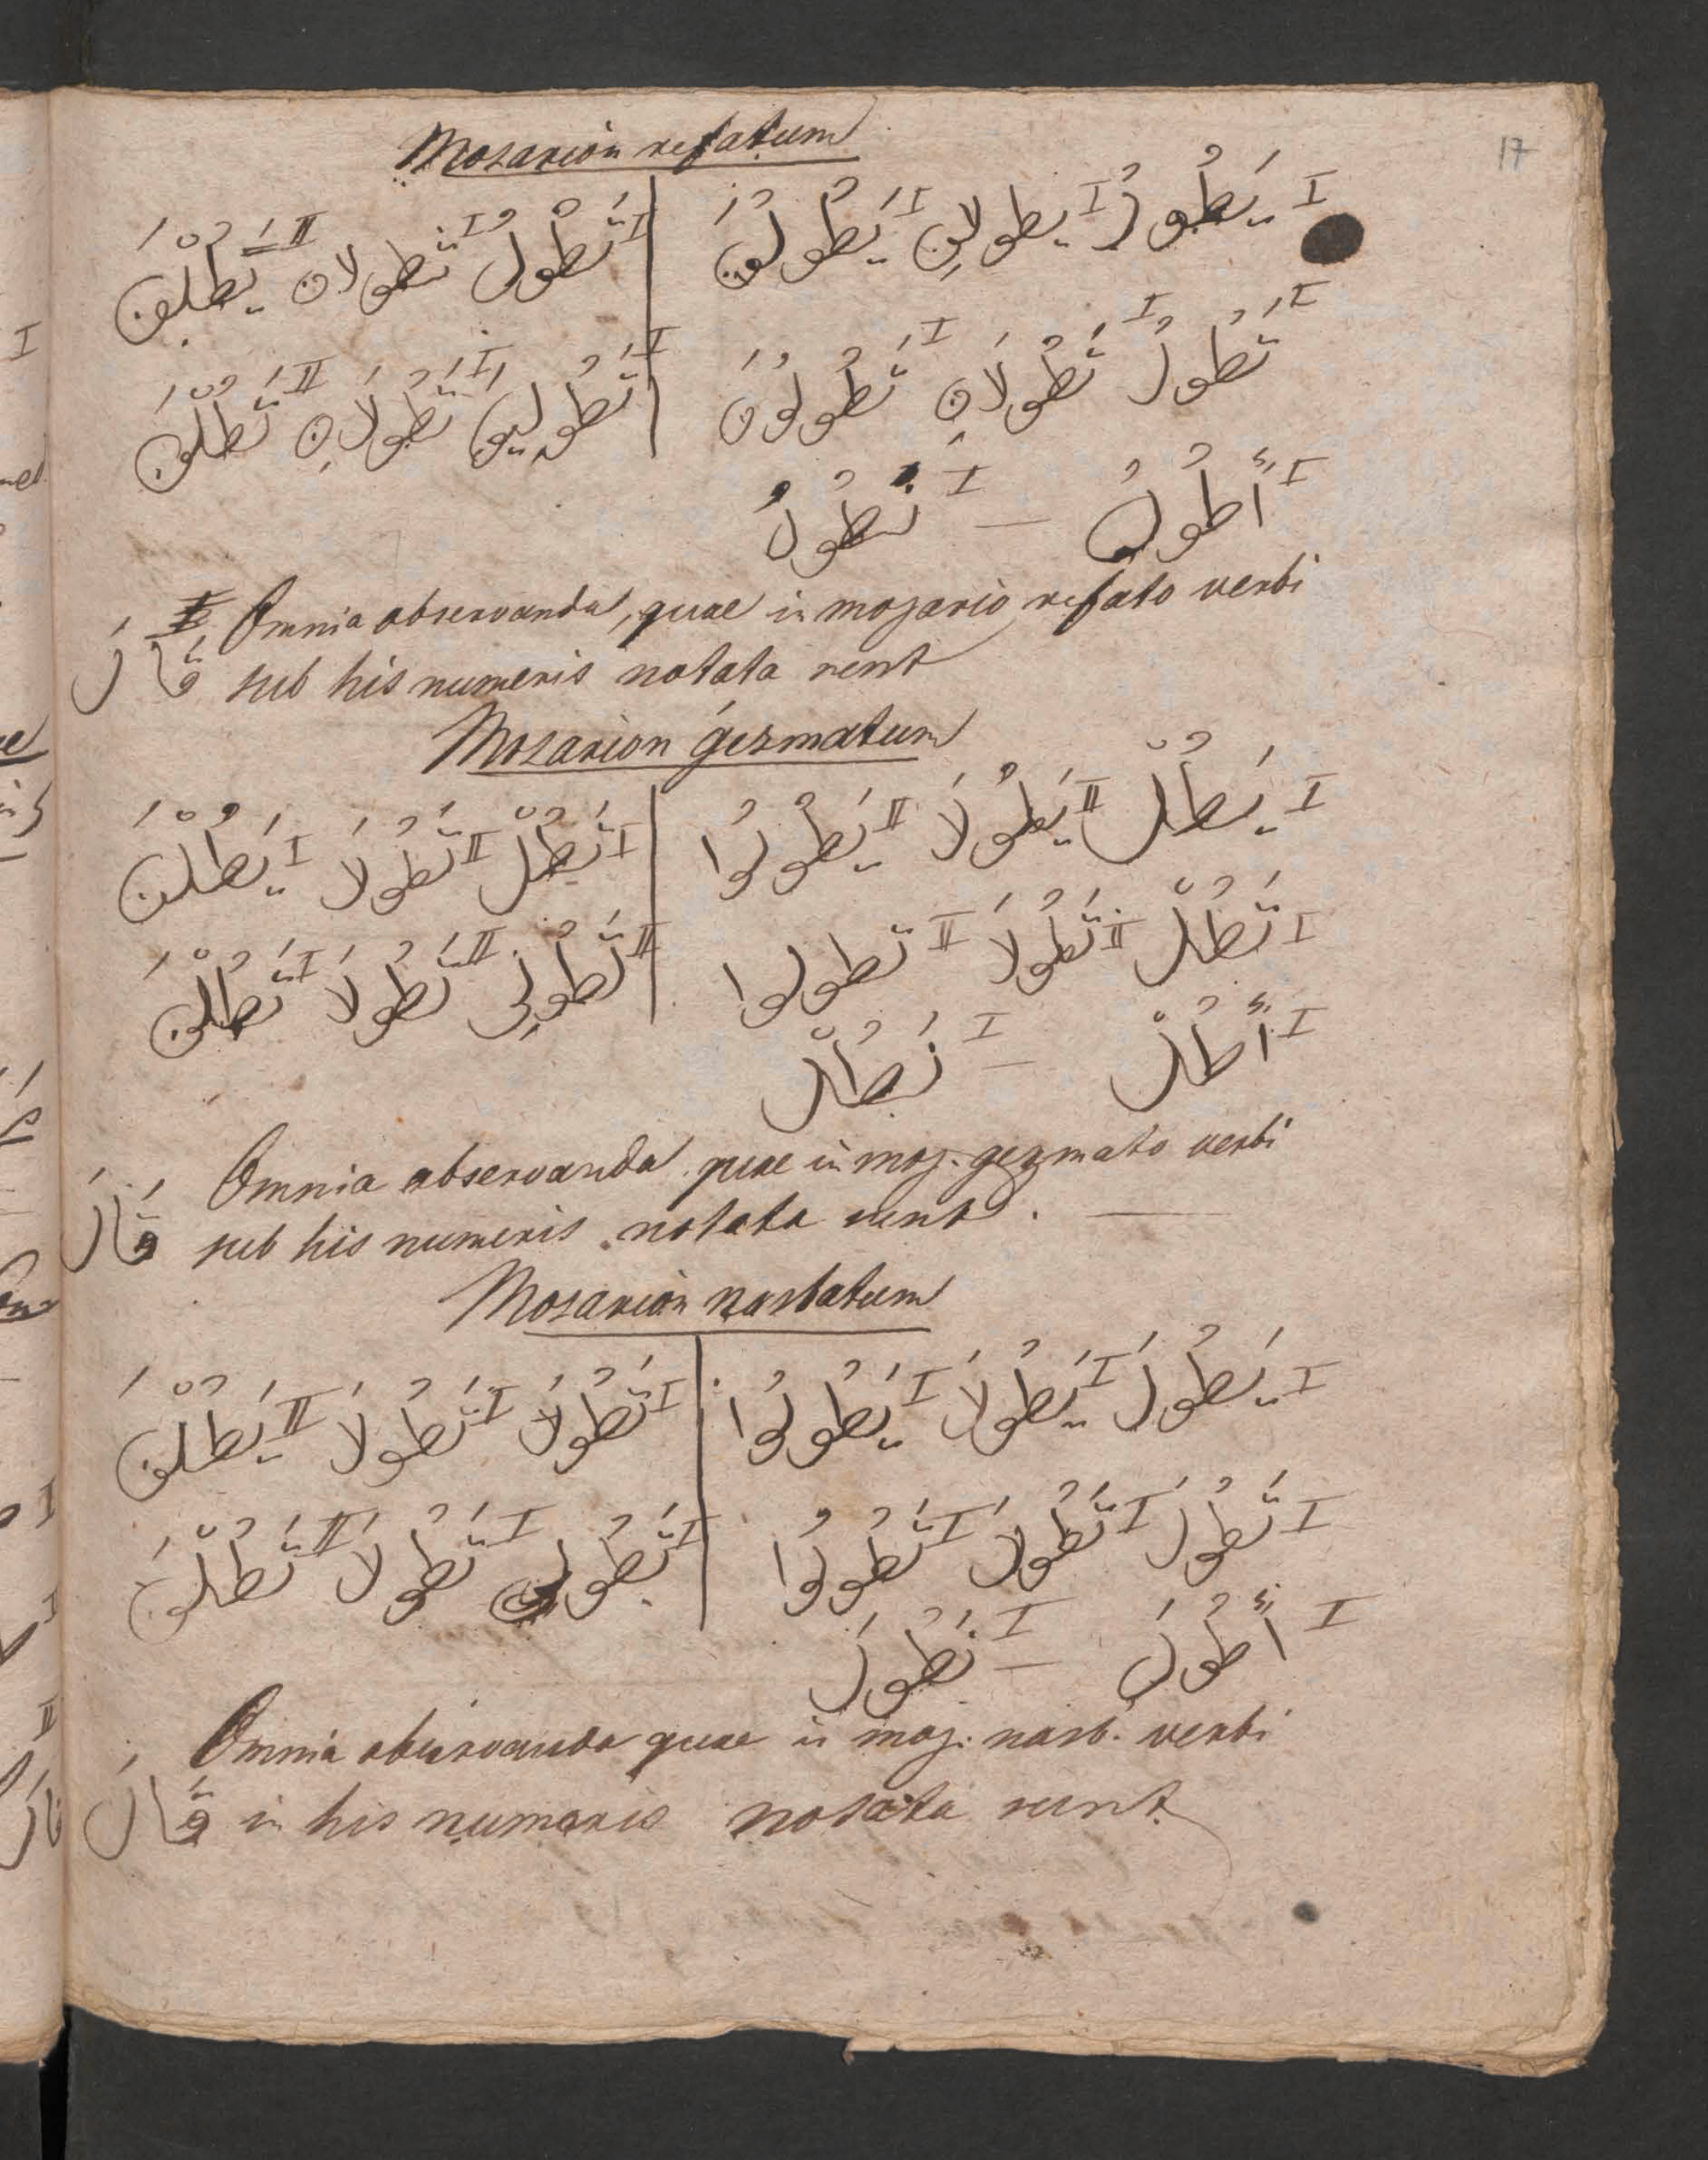 17
Mozarion refatum
I يَطُولُ I يطولانِ I يَطُولُونَ | I تَطُولُ I تطولان II يَطُلْنَ
I تَطُولُ I تَطُولَانِ I تَطُولُونَ | I تَطُولِينَ I تَطُولَانِ II تَطُلْنَ
I أَطُولُ — I نَطُولُ
Omnia observanda, quae in mozario refato verbi
قَالَ sub his numeris notata sunt
Mozarion gezmatum
I يَطُلْ II يَطُولَا II يَطُولُوا | I تَطُلْ II تَطُولَا I يَطُلْنَ
I تَطُلْ II تَطُولَا II تطولوا | II تَطُولِي II تَطُولَا I تَطُلْنَ
I أَطُلْ — I نَطُلْ
Omnia observanda quae in moz. gezmato verbi
قَالَ sub his numeris notata sunt.
Mozarion nasbatum
I يَطُولَ I يَطُولَا I يَطُولُوا | I تَطُولَ I تَطُولَا II يَطُلْنَ
I تَطُولَ I تَطُولَا I تَطُولُوا | I تَطُولِي I تَطُولَا II تَطُلْنَ
I أَطُولَ — I نَطُولَ
Omnia observanda quae in moz: nasb. verbi
قَالَ in his numeris notata sunt